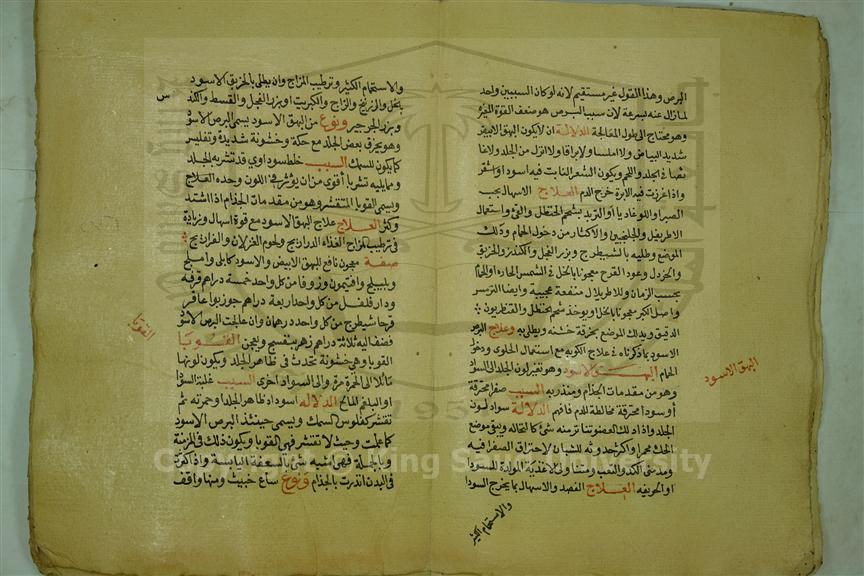 البرص وهذا القول غير مستقيم لانه لو كان السببين واحد
لما زال عنه بسرعة لان سبب البرص هو ضعف القوة المغيرة
وهو محتاج الى طول المعالجة الدلالة ان لا يكون البهق الابيض
شديد البياض ولا املسا ولا براقا ولا انزل من الجلد ولا غا
في الجلد واللحم ويكون الشعر النابت فيه اسود او اشقر
واذا غرزت فيه الابرة خرج الدم العلاج الاسهال بحب
الصبر او اللوغاذيا او التربد بشحم الحنظل والقئ واستعمال
الاطريفل والجلنجبين والاكثار من دخول الحمام ودلك
الموضع وطليه بالشيطرج وبزر الفجل والكندر والخربق
والخردل وعود القرح معجونا بالخل في الشمس الحاره او الحمام
بحسب الزمان وللاطريلال منفعة عجيبة وايضا الترمس
واصل الكبر معجونا بالخل ويوخذ شحم الحنظل والقنطريون
الدقيق ويدلك الموضع بخرقة خشنه ويطلى به وعلاج البرص
الاسود بما ذكرناه في علاج الكوبه مع استعمال الحلوى ودخول
الحمام البهق الاسود وهو تغير لون الجلد الى السواد
وهو من مقدمات الجذام ومنذر به السبب صفرا محترقة
او سودا محترقة مخالطة للدم فافهم الدلالة سواد لون
الجلد واذا دلك العضو تناثر منه شئ كالنخاله ويبقى موضع
الحك محمرا واكثر حدوثه للشبان لاحتراق الصفرا فيه
ومدمنى الكد والتعب ومتناولى الاغذية المولدة للسودا
او الحريفه العلاج الفصد والاسهال بما يخرج السودا
والاستحمام الكثير
البهق الاسود
والاستحمام الكثير وترطيب المزاج وان يطلى بالخربق الاسود
بالخل والزرنيخ والزاج والكبريت او بزر الفجل والقسط والكندس
وبزر الجرجير ونوع من البهق الاسود يسمى البرص الاسود
وهو يخرق بعض الجلد مع حكة وخشونة شديدة وتفليس
كما يكون للسمك السبب خلط سوداوى قد تشربه الجلد
وما يليه تشربا أقوى من ان يوثر في اللون وحده العلاج
ويسمى القوبا المتقشره وهو من مقدمات الجذام اذا اشتد
وكثر العلاج علاج البهق الاسود مع قوة اسهال وزيادة
في ترطيب المزاج الغذاء الدراريج ولحوم الغزلان والفراريج
صفة معجون نافع للبهق الابيض والاسود كابلى واملج
وبليلج وافتيمون وزوفا من كل واحد خمسة دراهم قرفه
ودار فلفل من كل واحد اربعة دراهم جوزبوا عاقر
قرحا شيطرج من كل واحد درهمان وان عالجت البرص الاسود
فضف اليه ثلاثة دراهم زهر بنفسج ويعجن القوبا
القوبا وهي خشونة تحدث في ظاهر الجلد ويكون لونها
مائلا الى الحمرة مرة والى السواد اخرى السبب غلبة السودا
او البلغم المالح الدلاله اسوداد ظاهر الجلد وحمرته ثم
تقشر كفلوس السمك ويسمى حينئذ البرص الاسود
كما علمت وحيث لا تقشر فهي القوبا ويكون ذلك في المزمنة
وبالجملة فهي اشبه شئ بالسعفة اليابسة واذا كثرت
في البدن انذرت بالجذام ونوع ساع خبيث ومنها واقف
القوبا